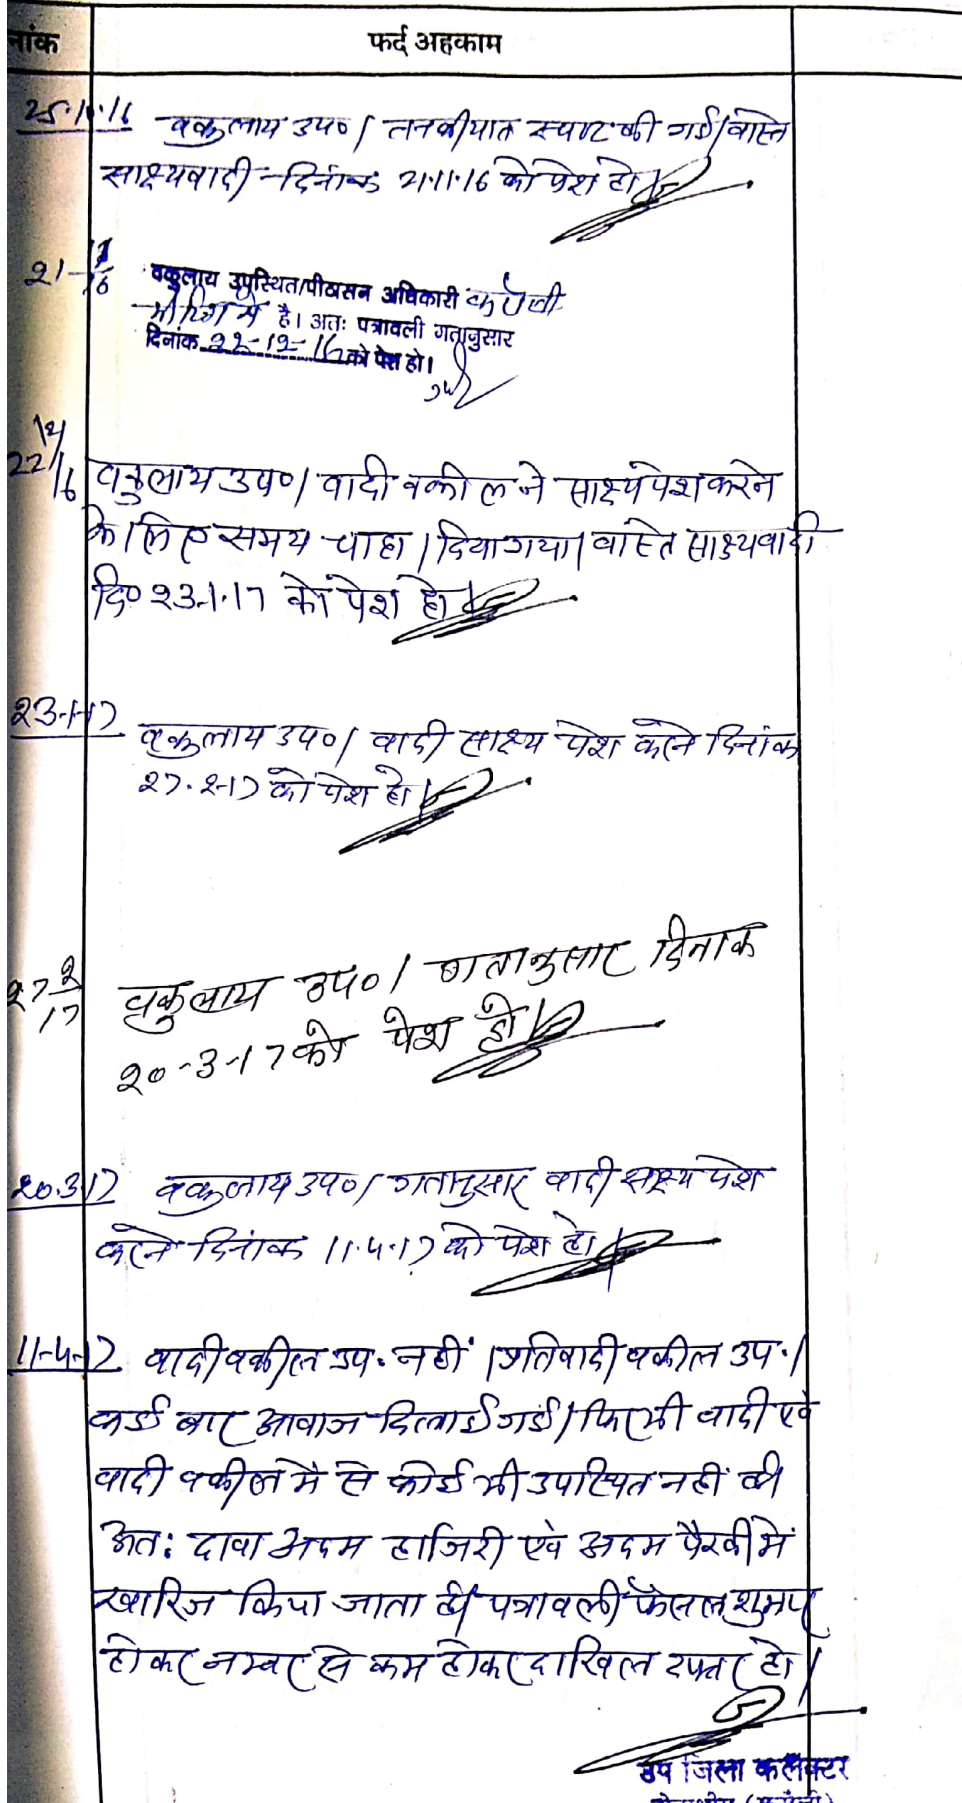 नांक फर्द अहकाम
25.10.16 वकुलाय उप० / तनकीयात स्पष्ट की गई / वास्ते
साक्ष्यवादी दिनांक 21.11.16 को पेश हो।
21-11/16 वकुलाय उपस्थित/पीठासन अधिकारी
मीटिंग में है। अतः पत्रावली गतानुसार
दिनांक 22-12-16 को पेश हो।
22/12/16 वकुलाय उप० / वादी वकील ने साक्ष्य पेश करने
के लिए समय चाहा। दिया गया। वास्ते साक्ष्यवादी
दि० 23.1.17 को पेश हो।
23-1-17 वकुलाय उप० / वादी साक्ष्य पेश करने दिनांक
27.2.17 को पेश हो।
27 2/17 वकुलाय उप० / गतानुसार दिनांक
20-3-17 को पेश हो।
20.3.17 वकुलाय उप० / गतानुसार वादी साक्ष्य पेश
करने दिनांक 11.4.17 को पेश हो।
11-4-17 वादी वकील उप. नहीं। प्रतिवादी वकील उप.।
कई बार आवाज दिलाई गई। फिर भी वादी एवं
वादी वकील मे से कोई भी उपस्थित नहीं है।
अतः दावा अदम हाजिरी एवं अदम पैरवी में
खारिज किया जाता है। पत्रावली फैसल शुमार
होकर नम्बर से कम होकर दाखिल दफ्तर हो।
उप जिला कलेक्टर